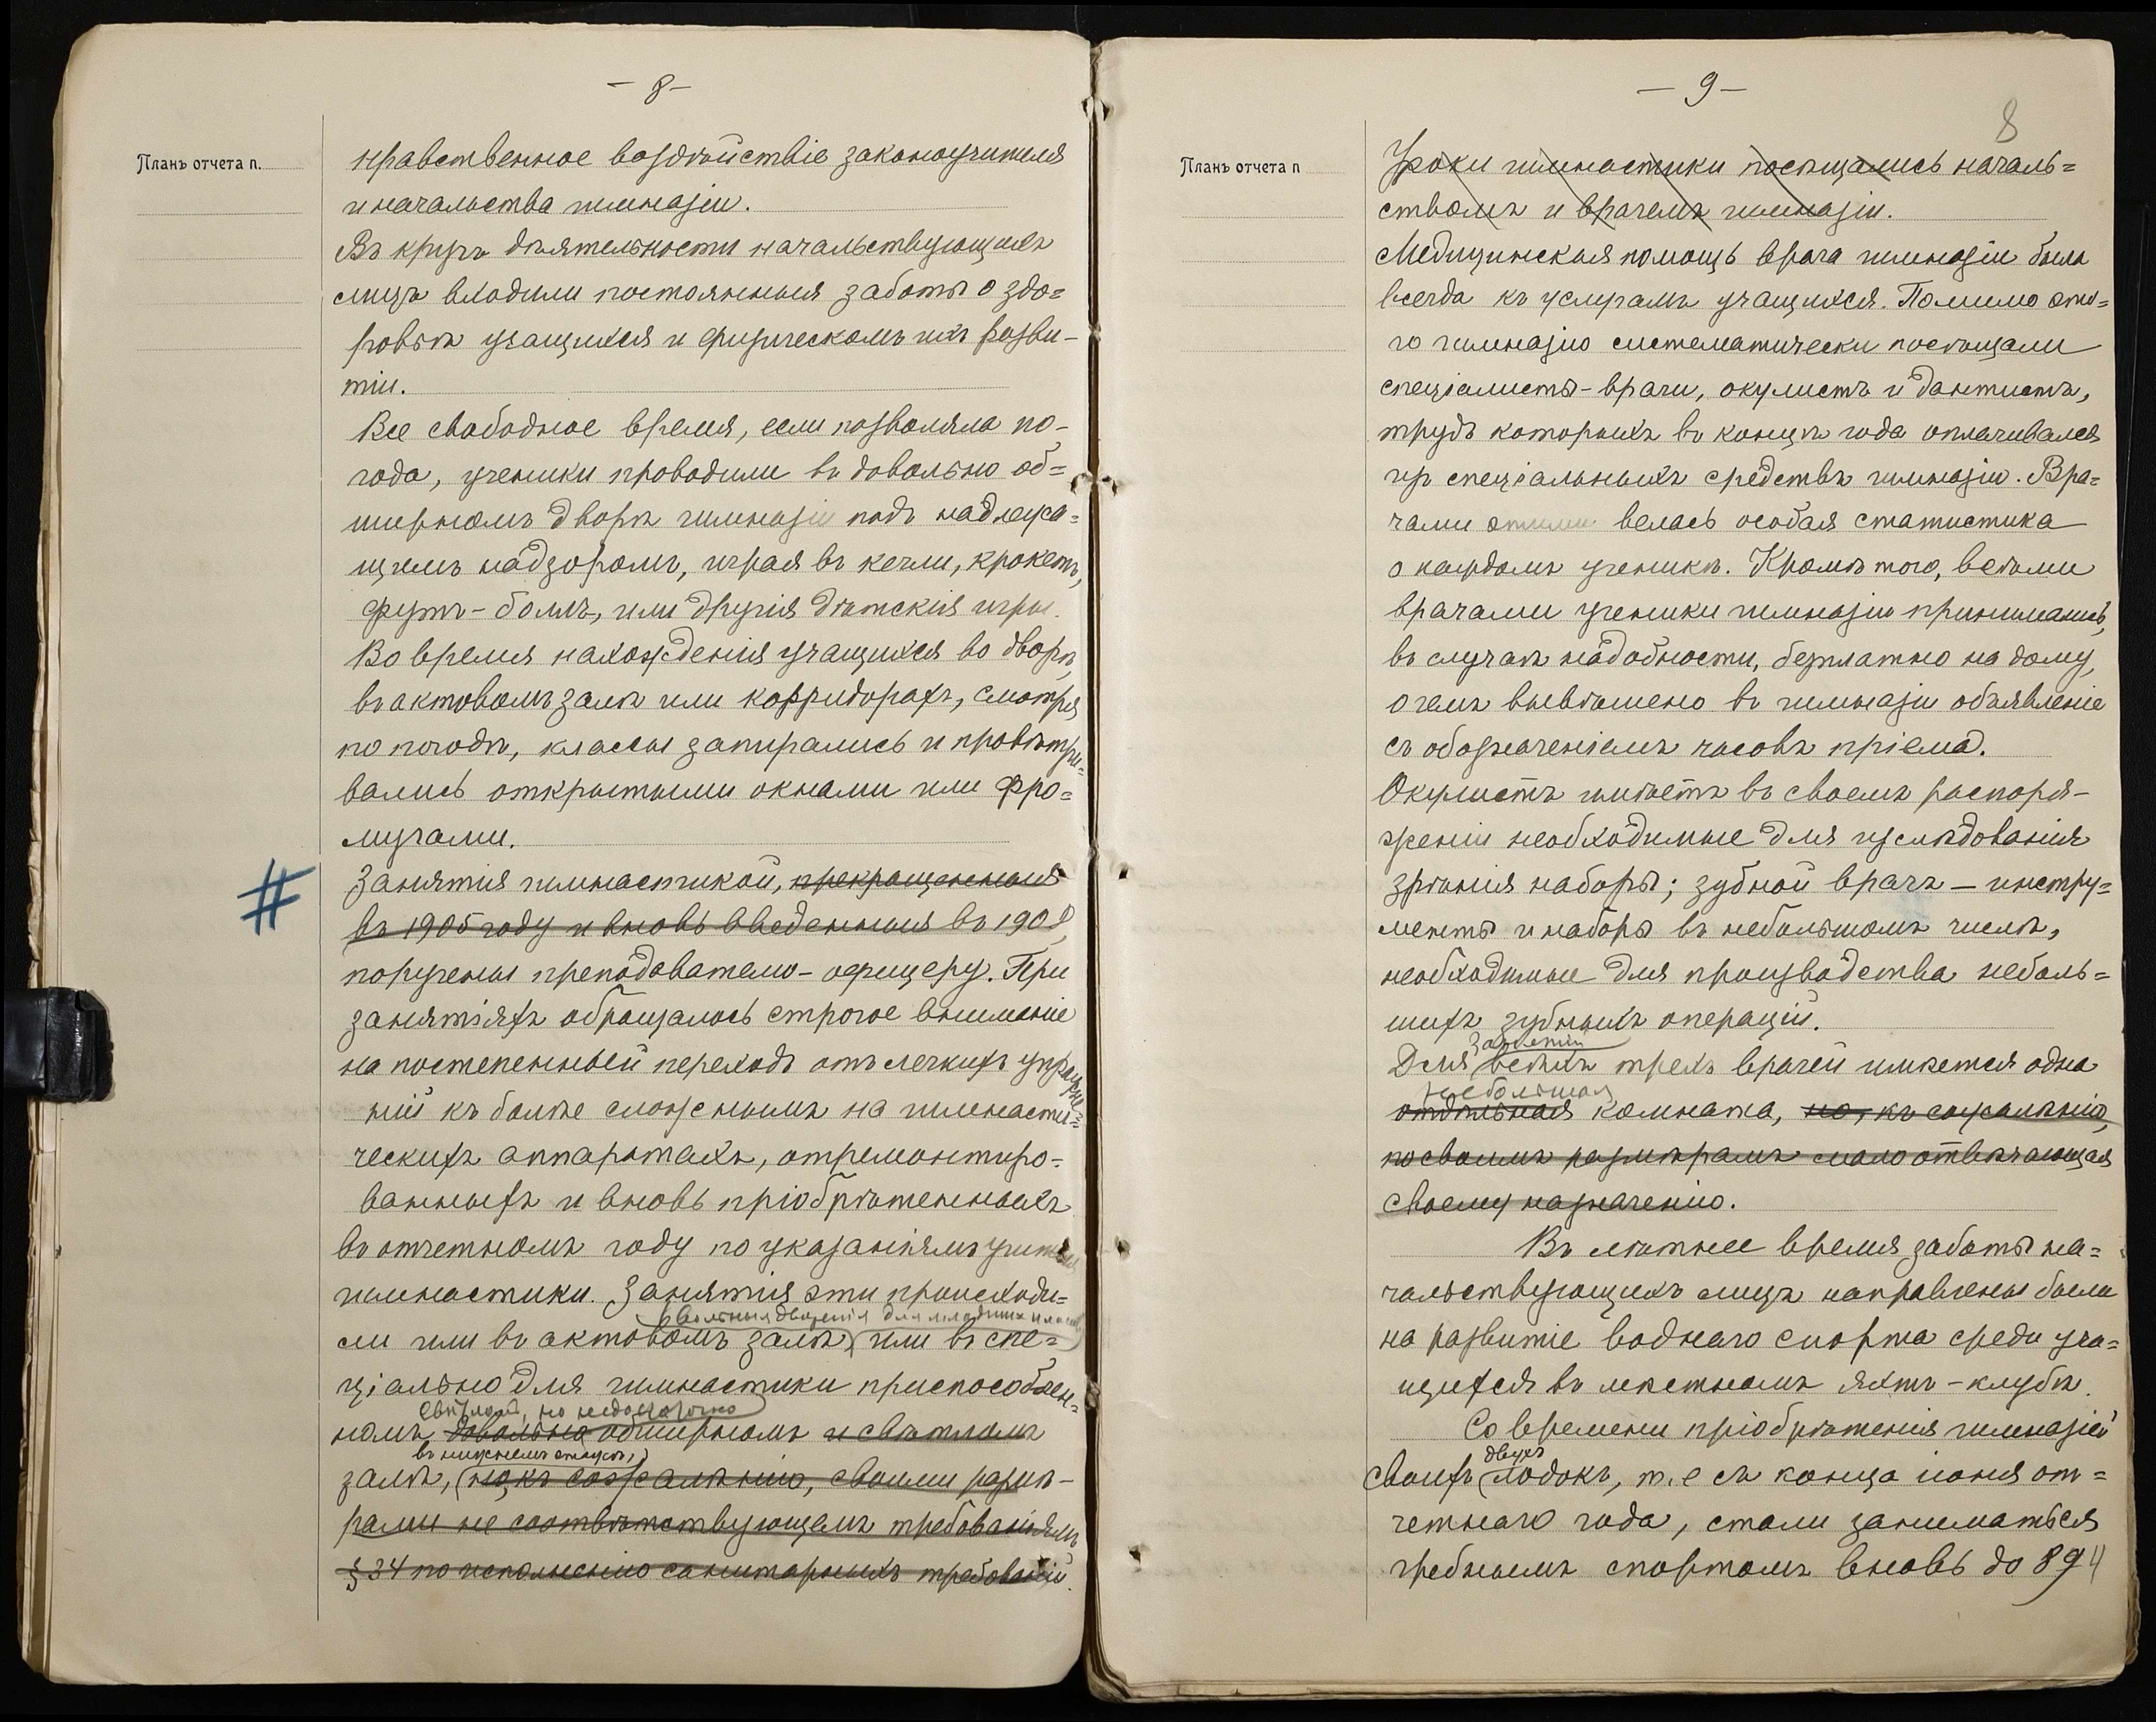 — 8 —
Планъ отчета п.
нравственное воздѣйствіе законоучителя
и начальства гимназіи.
Въ кругъ дѣятельности начальствующихъ
лицъ входили постоянныя заботы о здо=
ровьѣ учащихся и физическомъ ихъ разви-
тіи.
Все свободное время, если позволяла по-
года, ученики проводили въ довольно об=
ширномъ дворѣ гимназіи подъ надлежа=
щимъ надзоромъ, играя въ кегли, крокетъ,
футъ-болъ, или другія дѣтскія игры.
Во время нахожденія учащихся во дворѣ,
въ актовомъ залѣ или корридорахъ, смотря
по погодѣ, классы запирались и провѣтри=
вались открытыми окнами или фра=
мугами.
# Занятія гимнастикой, прекращенныя
въ 1905 году и вновь введенныя въ 1908,
поручены преподавателю-офицеру. При
занятіяхъ обращалось строгое вниманіе
на постепенный переходъ отъ легкихъ упражне=
ній къ болѣе сложнымъ на гимнасти=
ческихъ аппаратахъ, отремонтиро=
ванныхъ и вновь пріобрѣтенныхъ
въ отчетномъ году по указаніямъ учителя
гимнастики. Занятія эти происходи=
(вольныя движенія для младшихъ классовъ)
ли или въ актовомъ залѣ, или въ спе=
ціально для гимнастики приспособлен=
свѣтломъ, но недостаточно
номъ довольно обширномъ и свѣтломъ
въ нижнемъ этажѣ,
залѣ, (но, къ сожалѣнію, своими размѣ-
рами не соотвѣтствующемъ требованіямъ
§ 34 по исполненію санитарныхъ требованій.
— 9 —
8
Планъ отчета п
Уроки гимнастики посѣщались началь=
ствомъ и врачемъ гимназіи.
Медицинская помощь врача гимназіи была
всегда къ услугамъ учащихся. Помимо это=
го гимназію систематически посѣщали
спеціалисты-врачи, окулистъ и дантистъ,
трудъ которыхъ въ концѣ года оплачивался
изъ спеціальныхъ средствъ гимназіи. Вра=
чами этими велась особая статистика
о каждомъ ученикѣ. Кромѣ того, всѣми
врачами ученики гимназіи принимались,
въ случаѣ надобности, безплатно на дому,
о чемъ вывѣшено въ гимназіи объявленіе
съ обозначеніемъ часовъ пріема.
Окулистъ имѣетъ въ своемъ распоря-
женіи необходимые для изслѣдованія
зрѣнія наборы; зубной врачъ — инстру=
менты и наборы въ небольшомъ числѣ,
необходимые для производства неболь=
шихъ зубныхъ операцій.
занятій
Для всѣхъ трехъ врачей имѣется одна
небольшая
отдѣльная комната, но, къ сожалѣнію,
по своимъ размѣрамъ мало отвѣчающая
своему назначенію.
Въ лѣтнее время заботы на=
чальствующихъ лицъ направлены были
на развитіе воднаго спорта среди уча=
щихся въ мѣстномъ яхтъ-клубѣ.
Со времени пріобрѣтенія гимназіей
двухъ
своихъ лодокъ, т. е съ конца іюня от=
четнаго года, стали заниматься
гребнымъ спортомъ вновь до 894